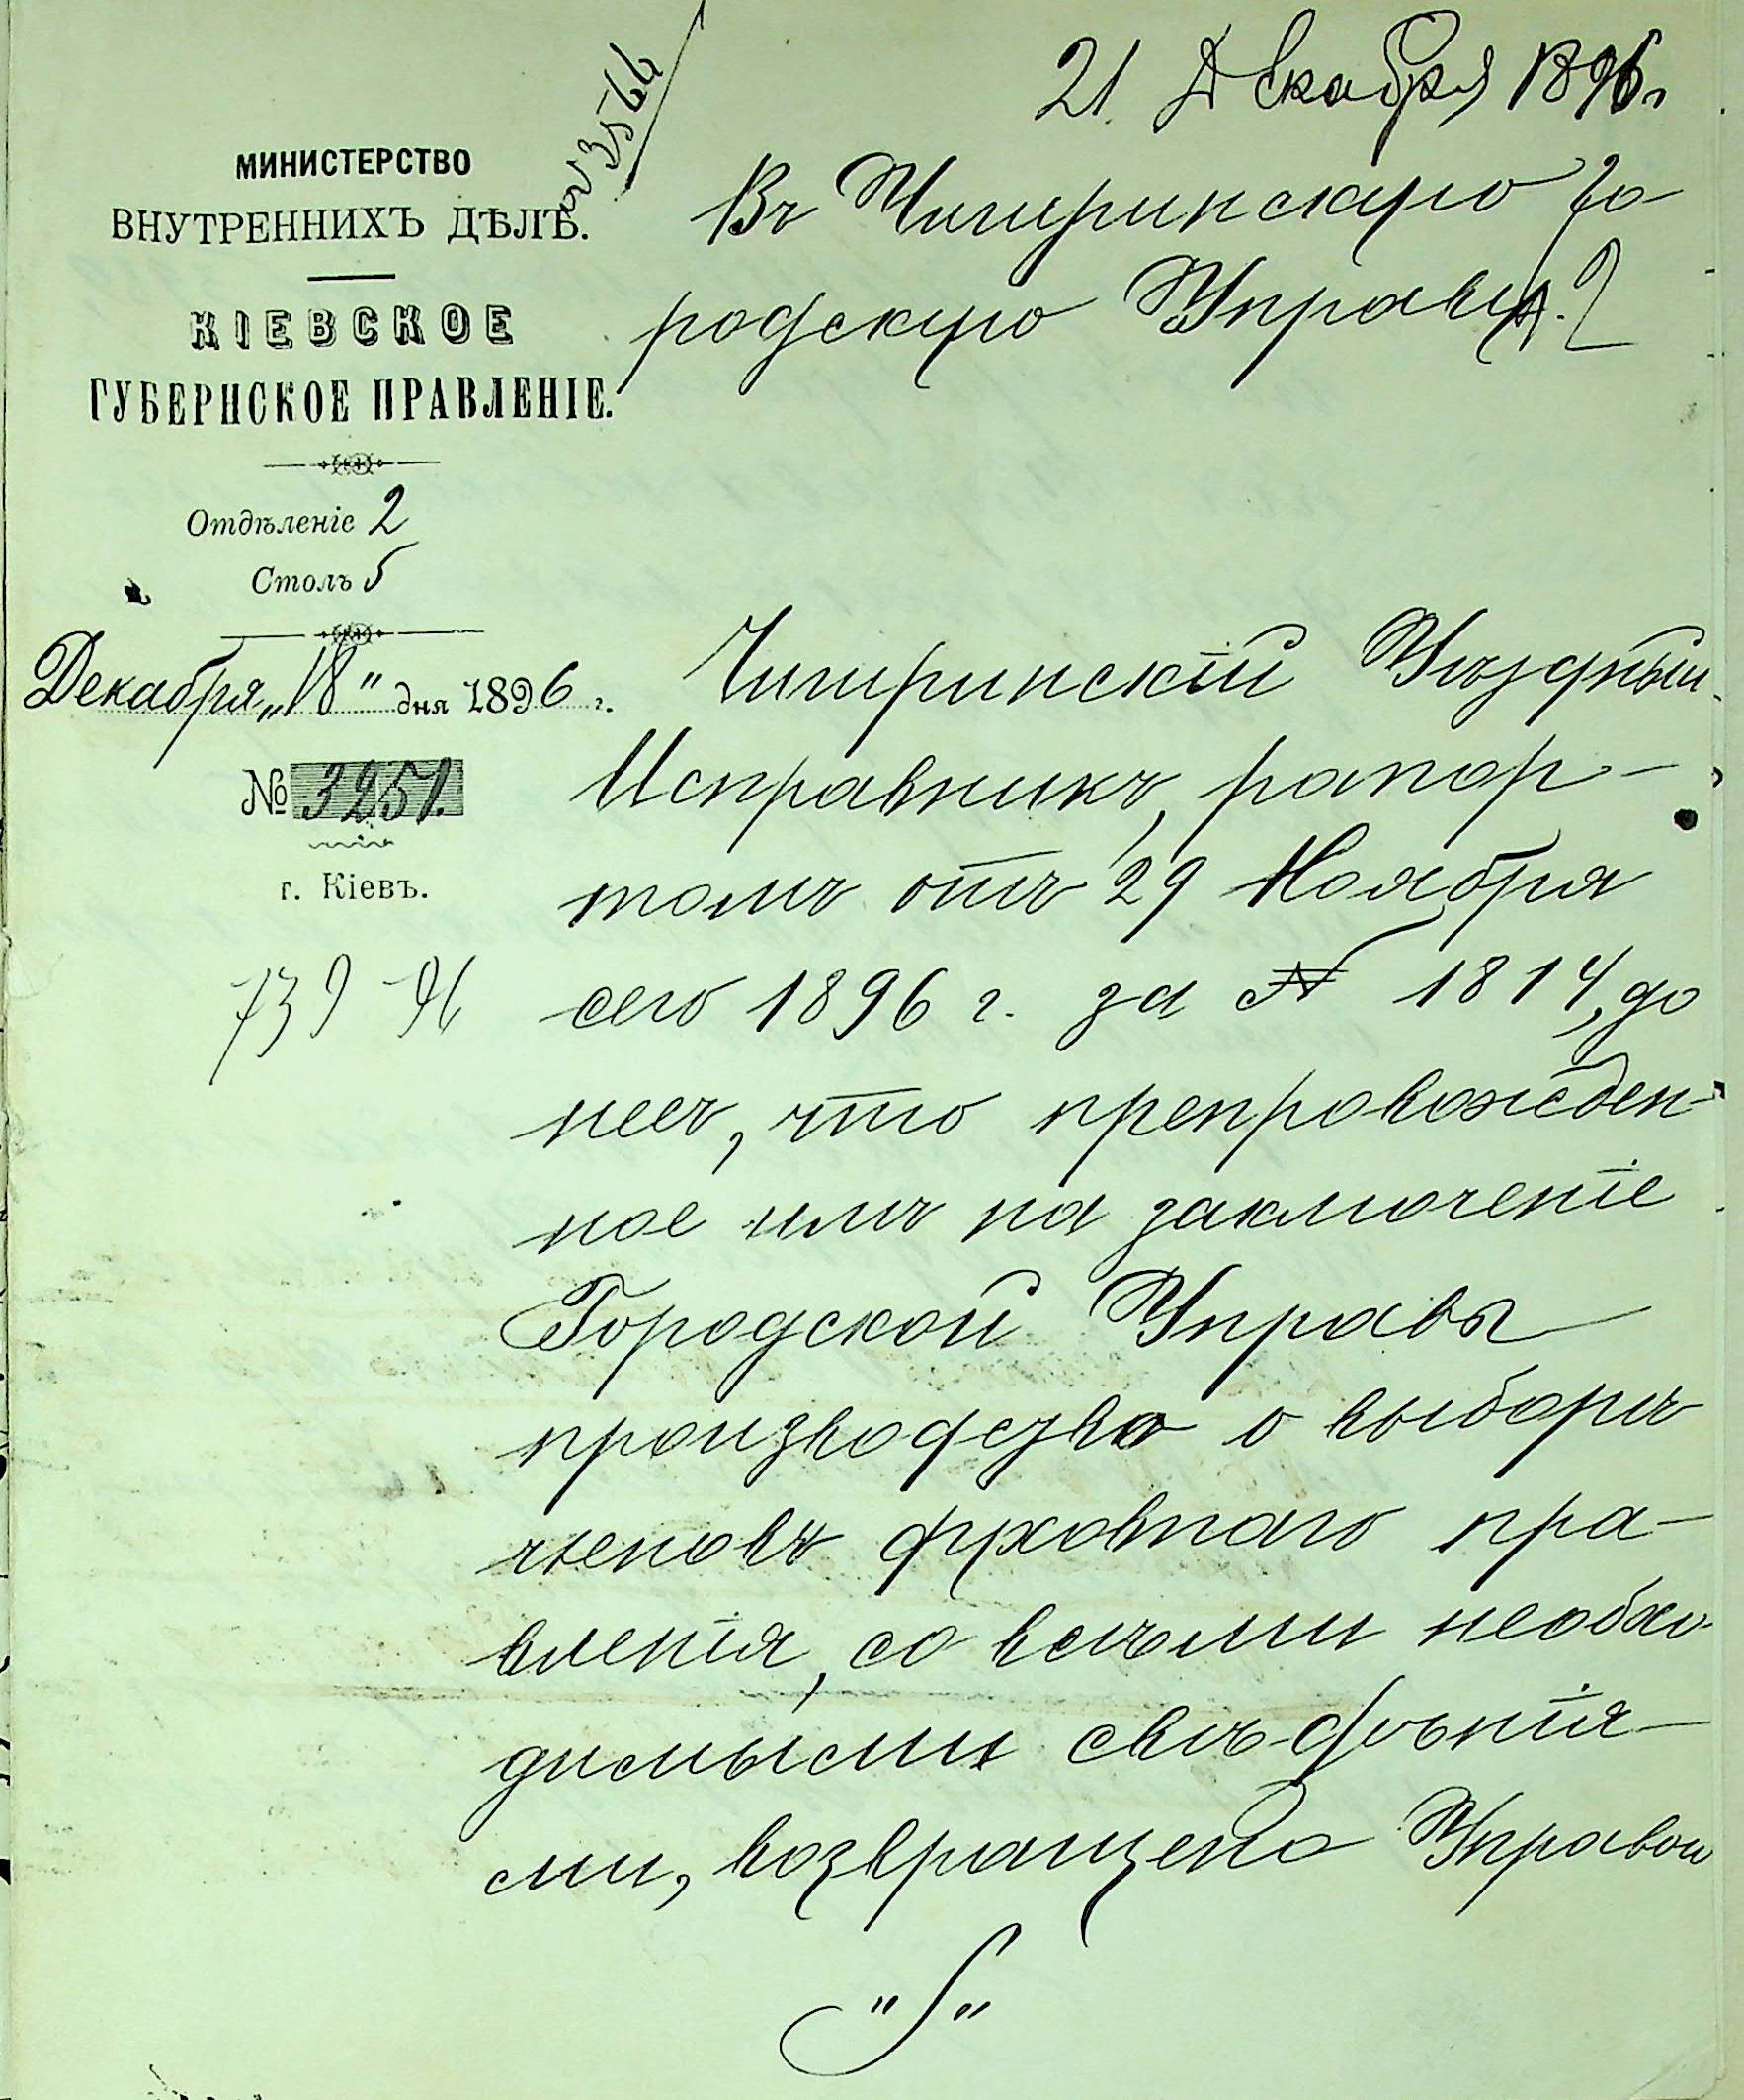 21 Декабря 1896 г
№ 3566
МИНИСТЕРСТВО
ВНУТРЕННИХЪ ДѢЛЪ.
КІЕВСКОЕ
ГУБЕРНСКОЕ ПРАВЛЕНІЕ.
Отдѣленіе 2
Столъ 5
Декабря „18" дня 1896 г.
№ 3251.
г. Кіевъ.
739 96
Въ Чигиринскую Го
родскую Управу.
Чигиринскій Уѣздный
Исправникъ, рапор-
томъ отъ 29 Ноября
сего 1896 г. за № 1814, до
несъ, что препровожден-
ное имъ на заключеніе
Городской Управы
производство о выборѣ
членовъ духовнаго пра-
вленія, со всѣми необхо-
димыми свѣдѣнія-
ми, возвращено Управой